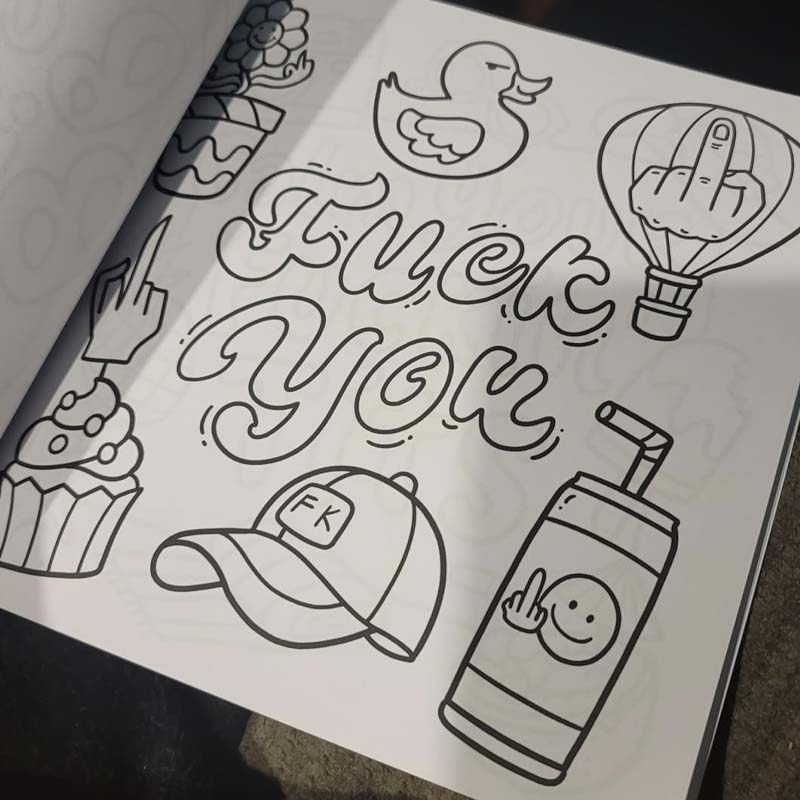 Fuck
You
FK